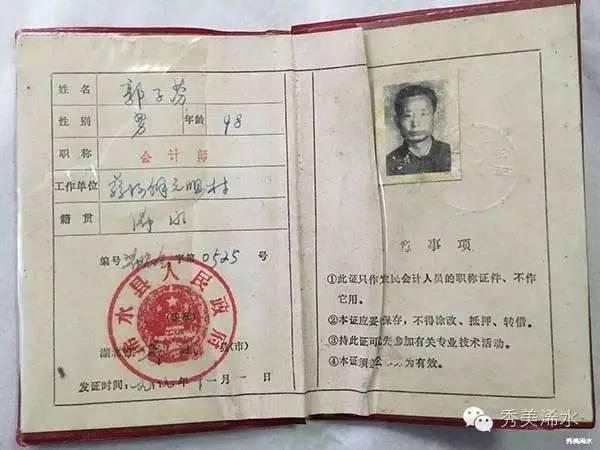 姓名 郭子芳
性别 男 年龄 48
职称 会计师
工作单位
籍贯 浠水
编号 字第0525号
浠水县人民政府
湖北省 县(市)
发证时间:一九八九年十一月一日
意事项
①此证只作农民会计人员的职称证件、不作
它用。
②本证应妥保存,不得涂改、抵押、转借。
③持此证可优先参加有关专业技术活动。
④本证须盖公 为有效。
秀美浠水
秀美浠水